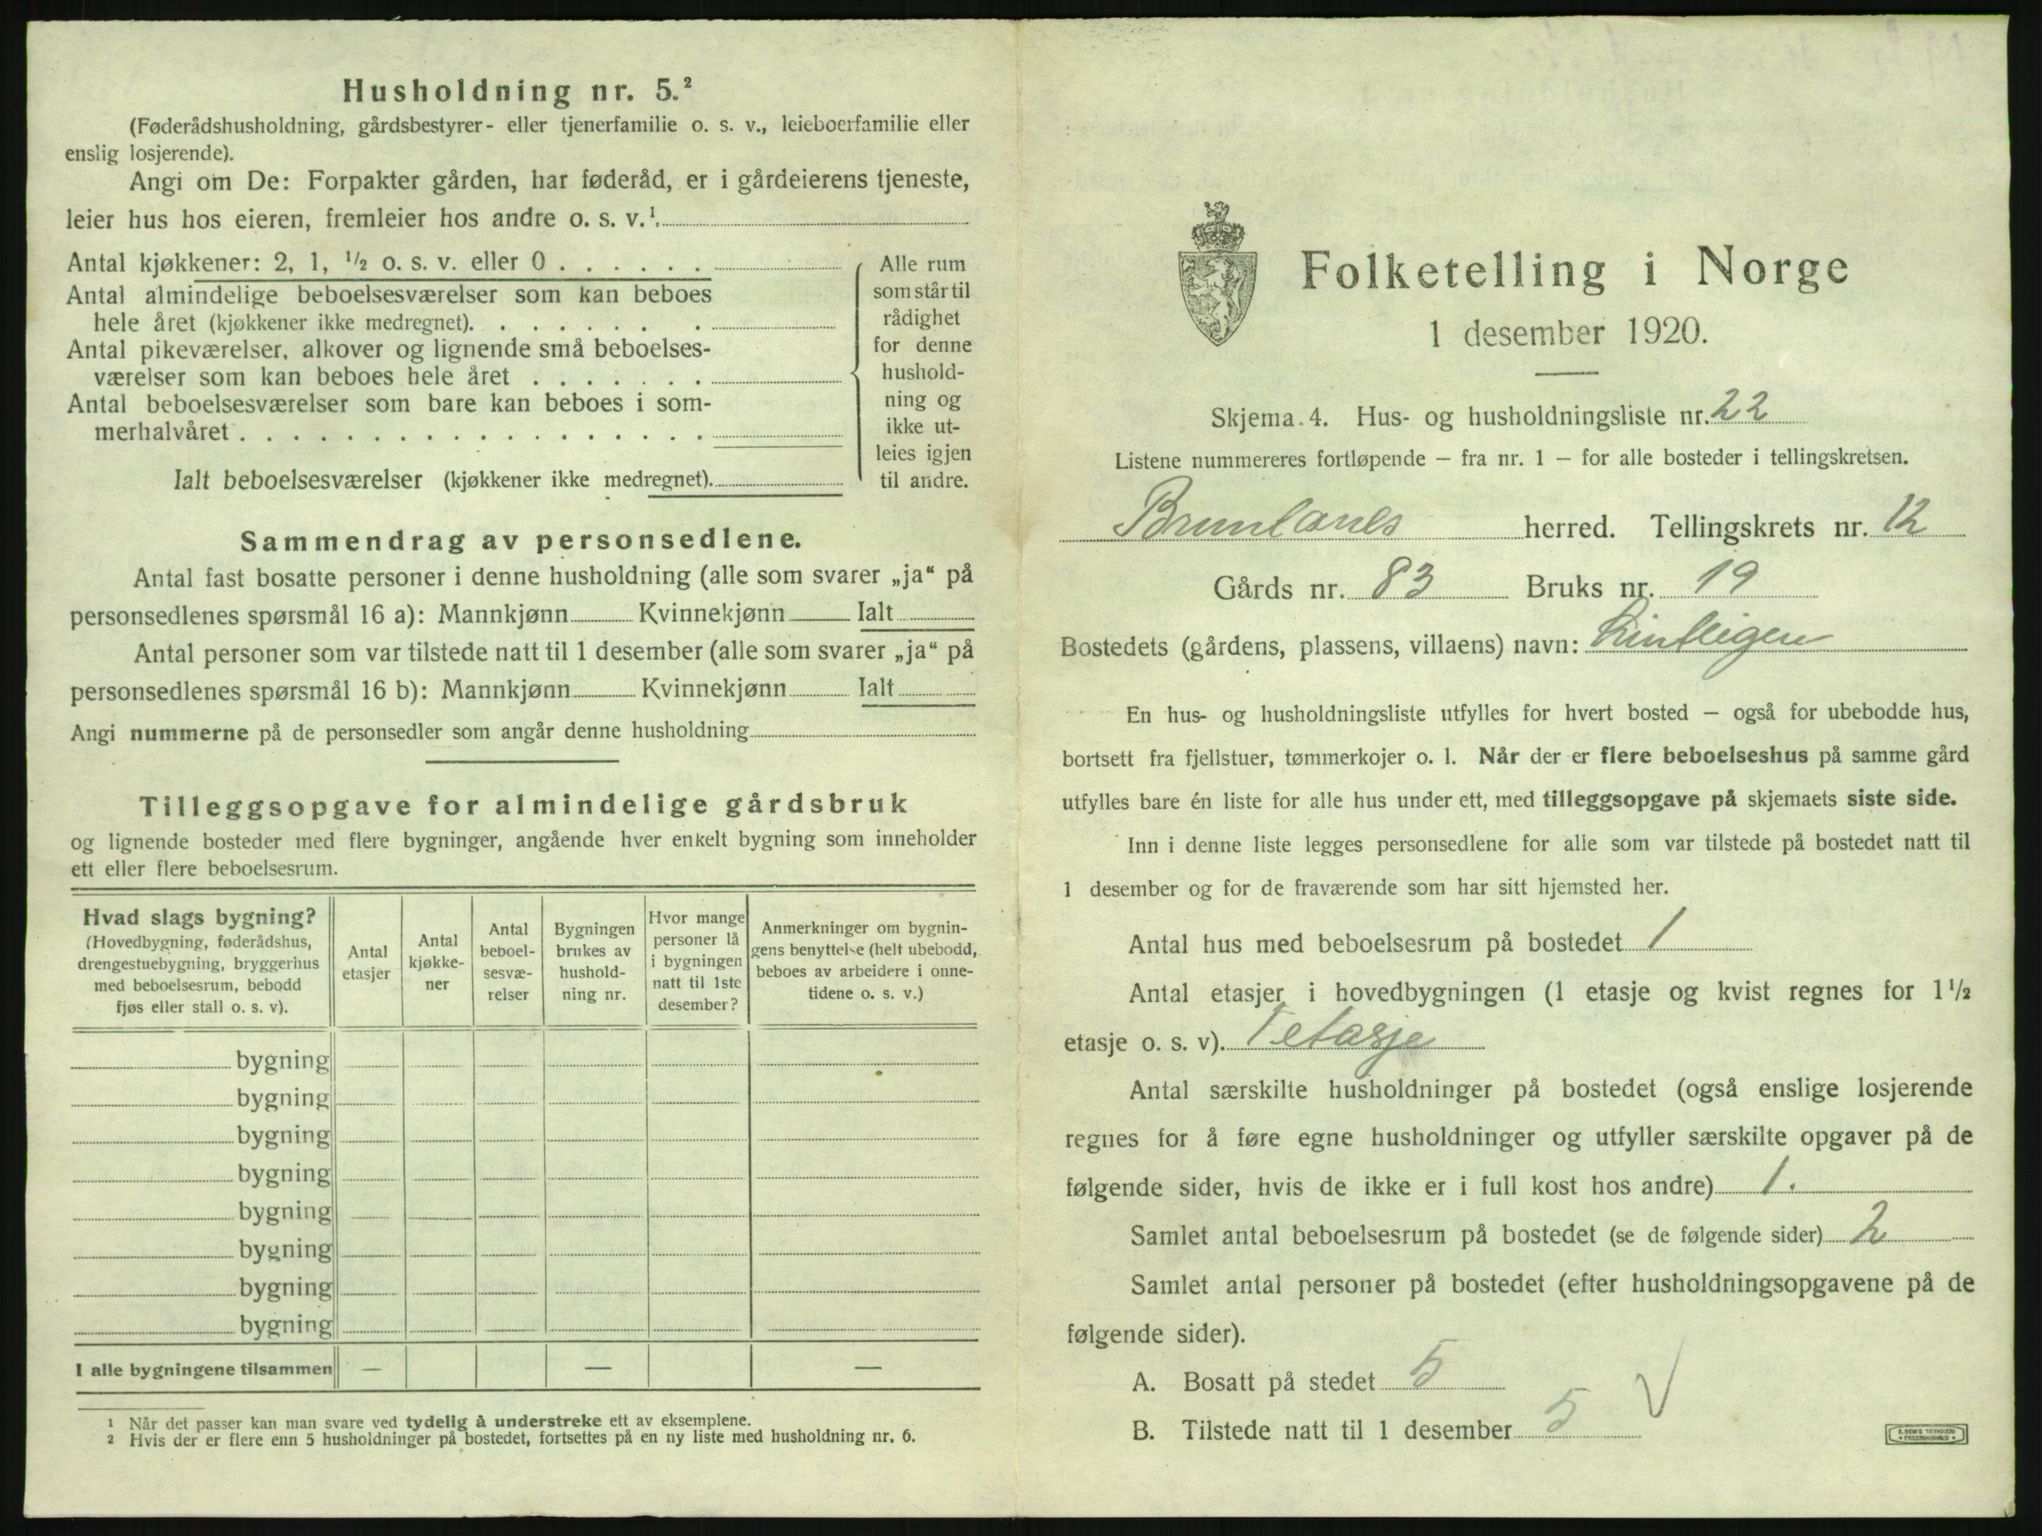 Husholdning nr. 5.²
(Føderådshusholdning, gårdsbestyrer- eller tjenerfamilie o. s. v., leieboerfamilie eller
enslig losjerende).
Angi om De: Forpakter gården, har føderåd, er i gårdeierens tjeneste,
leier hus hos eieren, fremleier hos andre o. s. v.¹
Antal kjøkkener: 2, 1, ½ o. s. v. eller 0 . . . . . .
Antal almindelige beboelsesværelser som kan beboes
hele året (kjøkkener ikke medregnet). . . . . . . .
Antal pikeværelser, alkover og lignende små beboelses-
værelser som kan beboes hele året . . . . . . .
Antal beboelsesværelser som bare kan beboes i som-
merhalvåret . . . . . . . . . . . . . . . . . .
Ialt beboelsesværelser (kjøkkener ikke medregnet).
Alle rum
som står til
rådighet
for denne
hushold-
ning og
ikke ut-
leies igjen
til andre.
Sammendrag av personsedlene.
Antal fast bosatte personer i denne husholdning (alle som svarer „ja“ på
personsedlenes spørsmål 16 a): Mannkjønn Kvinnekjønn Ialt
Antal personer som var tilstede natt til 1 desember (alle som svarer „ja“ på
personsedlenes spørsmål 16 b): Mannkjønn Kvinnekjønn Ialt
Angi nummerne på de personsedler som angår denne husholdning
Tilleggsopgave for almindelige gårdsbruk
og lignende bosteder med flere bygninger, angående hver enkelt bygning som inneholder
ett eller flere beboelsesrum.
Hvad slags bygning?
(Hovedbygning, føderådshus,
drengestuebygning, bryggerhus
med beboelsesrum, bebodd
fjøs eller stall o. s. v).
Antal
etasjer
Antal
kjøkke-
ner
Antal
beboel-
sesvæ-
relser
Bygningen
brukes av
hushold-
ning nr.
Hvor mange
personer lå
i bygningen
natt til 1ste
desember?
Anmerkninger om bygnin-
gens benyttelse (helt ubebodd,
beboes av arbeidere i onne-
tidene o. s. v.)
bygning
bygning
bygning
bygning
bygning
bygning
bygning
bygning
I alle bygningene tilsammen — — —
¹ Når det passer kan man svare ved tydelig å understreke ett av eksemplene.
² Hvis der er flere enn 5 husholdninger på bostedet, fortsettes på en ny liste med husholdning nr. 6.
Folketelling i Norge
1 desember 1920.
Skjema 4. Hus- og husholdningsliste nr. 22
Listene nummereres fortløpende – fra nr. 1 – for alle bosteder i tellingskretsen.
Brunlanes herred. Tellingskrets nr. 12
Gårds nr. 83 Bruks nr. 19
Bostedets (gårdens, plassens, villaens) navn:
En hus- og husholdningsliste utfylles for hvert bosted – også for ubebodde hus,
bortsett fra fjellstuer, tømmerkojer o. l. Når der er flere beboelseshus på samme gård
utfylles bare én liste for alle hus under ett, med tilleggsopgave på skjemaets siste side.
Inn i denne liste legges personsedlene for alle som var tilstede på bostedet natt til
1 desember og for de fraværende som har sitt hjemsted her.
Antal hus med beboelsesrum på bostedet 1
Antal etasjer i hovedbygningen (1 etasje og kvist regnes for 1½
etasje o. s. v). 1 etasje
Antal særskilte husholdninger på bostedet (også enslige losjerende
regnes for å føre egne husholdninger og utfyller særskilte opgaver på de
følgende sider, hvis de ikke er i full kost hos andre) 1.
Samlet antal beboelsesrum på bostedet (se de følgende sider) 2
Samlet antal personer på bostedet (efter husholdningsopgavene på de
følgende sider).
A. Bosatt på stedet 5
B. Tilstede natt til 1 desember 5 √
E. SEM'S TRYKKERI
• FREDRIKSHALD •